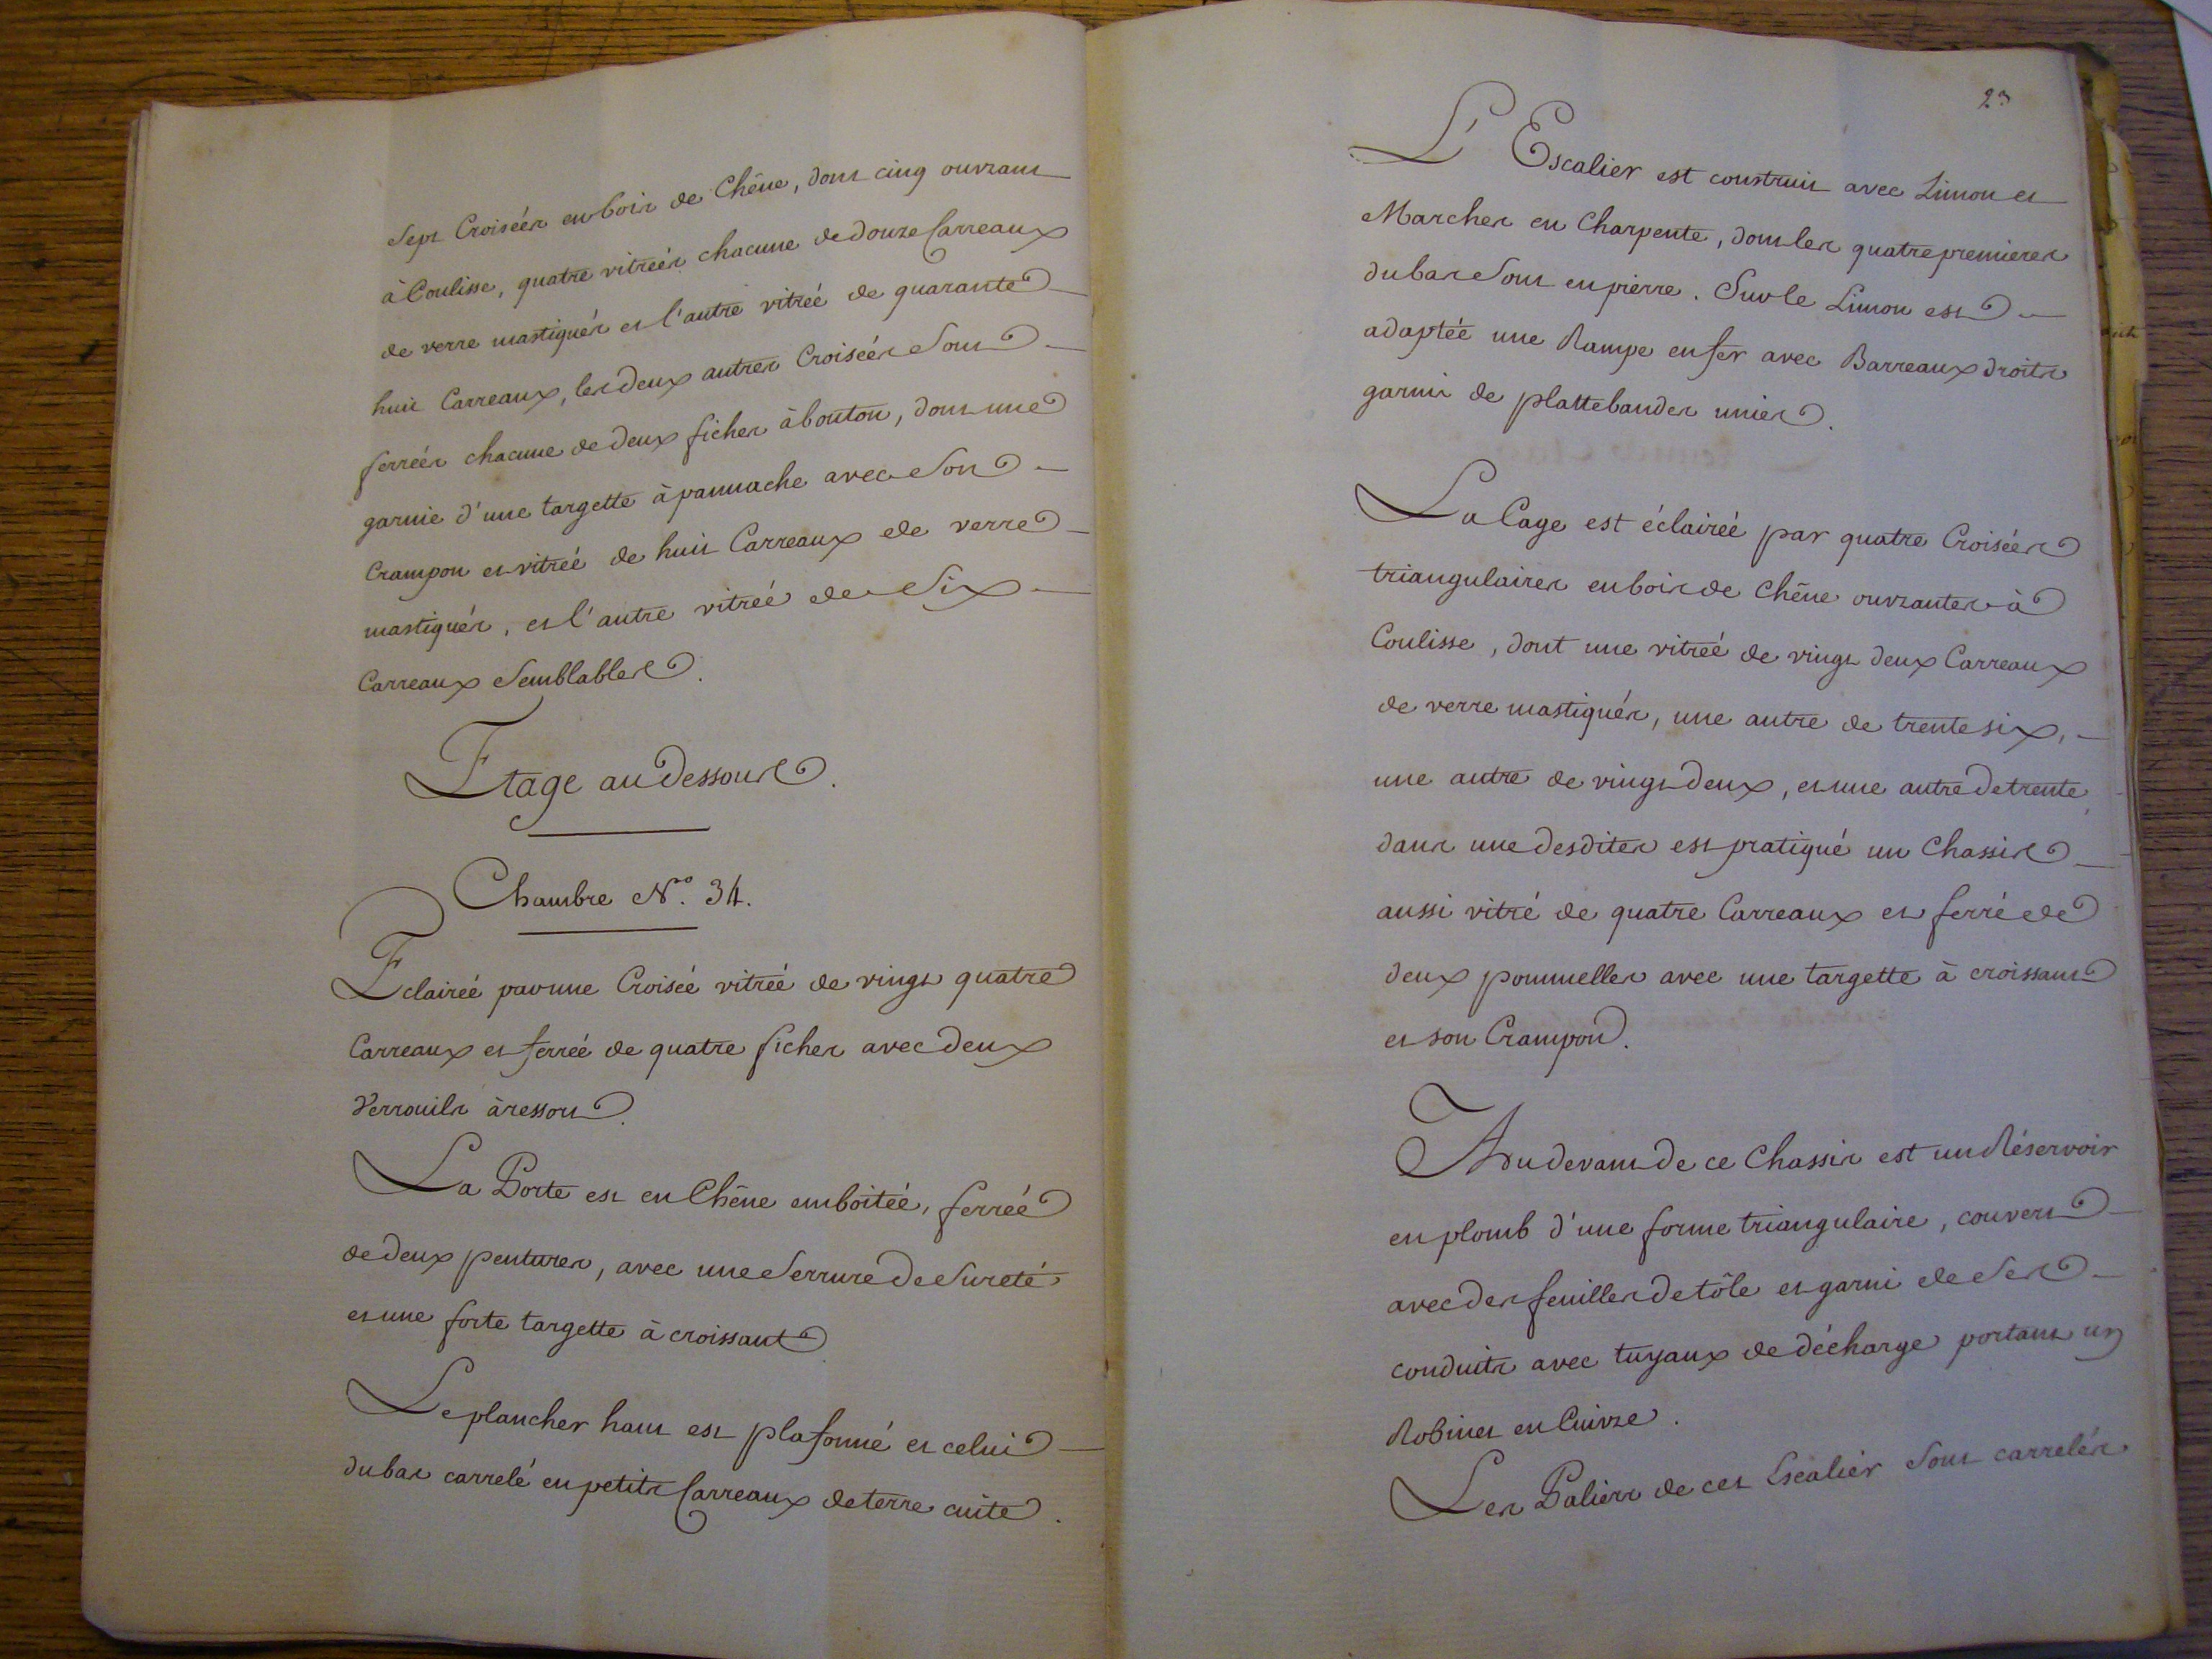 Sept Croisées en bois de Chêne, dont cinq ouvrant
à Coulisse, quatre vitréés chacune de douze Carreaux
de verre mastiqués et l'autre vitréé de quarante
huit Carreaux, les deux autres Croiséés sont
ferréés chacune de deux fiches à bouton, dont une
garnie d'une targette à pannache avec son
Crampon et vitréé de huit Carreaux de verre
mastiqués, et l'autre vitréé de Six
Carreaux Semblables.
Etage au dessous.
Chambre N.o 34.
Eclairéé par une Croiséé vitréé de vingt quatre
Carreaux et ferréé de quatre fiches avec deux
Verrouils à ressort.
La Porte est en Chêne emboitéé, ferréé
de deux pentures, avec une Serrure de Sureté
et une forte targette à croissant
Le plancher haut est plafonné et celui
du bas carrelé en petits Carreaux de terre cuite.
23
L'Escalier est construit avec Limon et
Marches en Charpente, dont les quatre premieres
du bas Sont en pierre. Sur le Limon est
adaptéé une Rampe en fer avec Barreaux droits
garni de plattebandes unies.
La Cage est éclairéé par quatre Croiséés
triangulaires en bois de Chêne ouvrantes à
Coulisse, dont une vitréé de vingt deux Carreaux
de verre mastiqués, une autre de trente six,
une autre de vingt deux, et une autre de trente,
dans une desdites est pratiqué un Chassis
aussi vitré de quatre Carreaux et ferré de
deux pommelles avec une targette à croissant
et son Crampon.
Au devant de ce Chassis est un Réservoir
en plomb d'une forme triangulaire, couvert
avec des feuilles de tôle et garni de Ses
conduits avec tuyaux de décharge portant un
Robinet en Cuivre.
Les Paliers de cet Escalier Sont carrelés